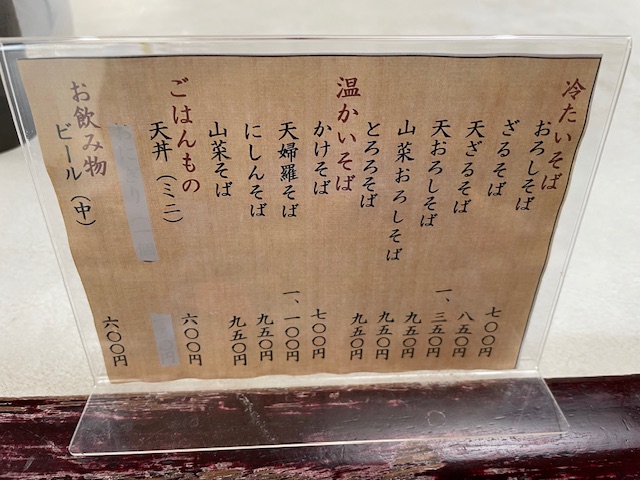 冷たいそば
おろしそば 七〇〇円
ざるそば 八五〇円
天ざるそば 一、三五〇円
天おろしそば 九五〇円
山菜おろしそば 九五〇円
とろろそば 九五〇円
温かいそば
かけそば 七〇〇円
天婦羅そば 一、一〇〇円
にしんそば 九五〇円
山菜そば 九五〇円
ごはんもの
天丼（ミニ） 六〇〇円
お飲み物
ビール（中） 六〇〇円